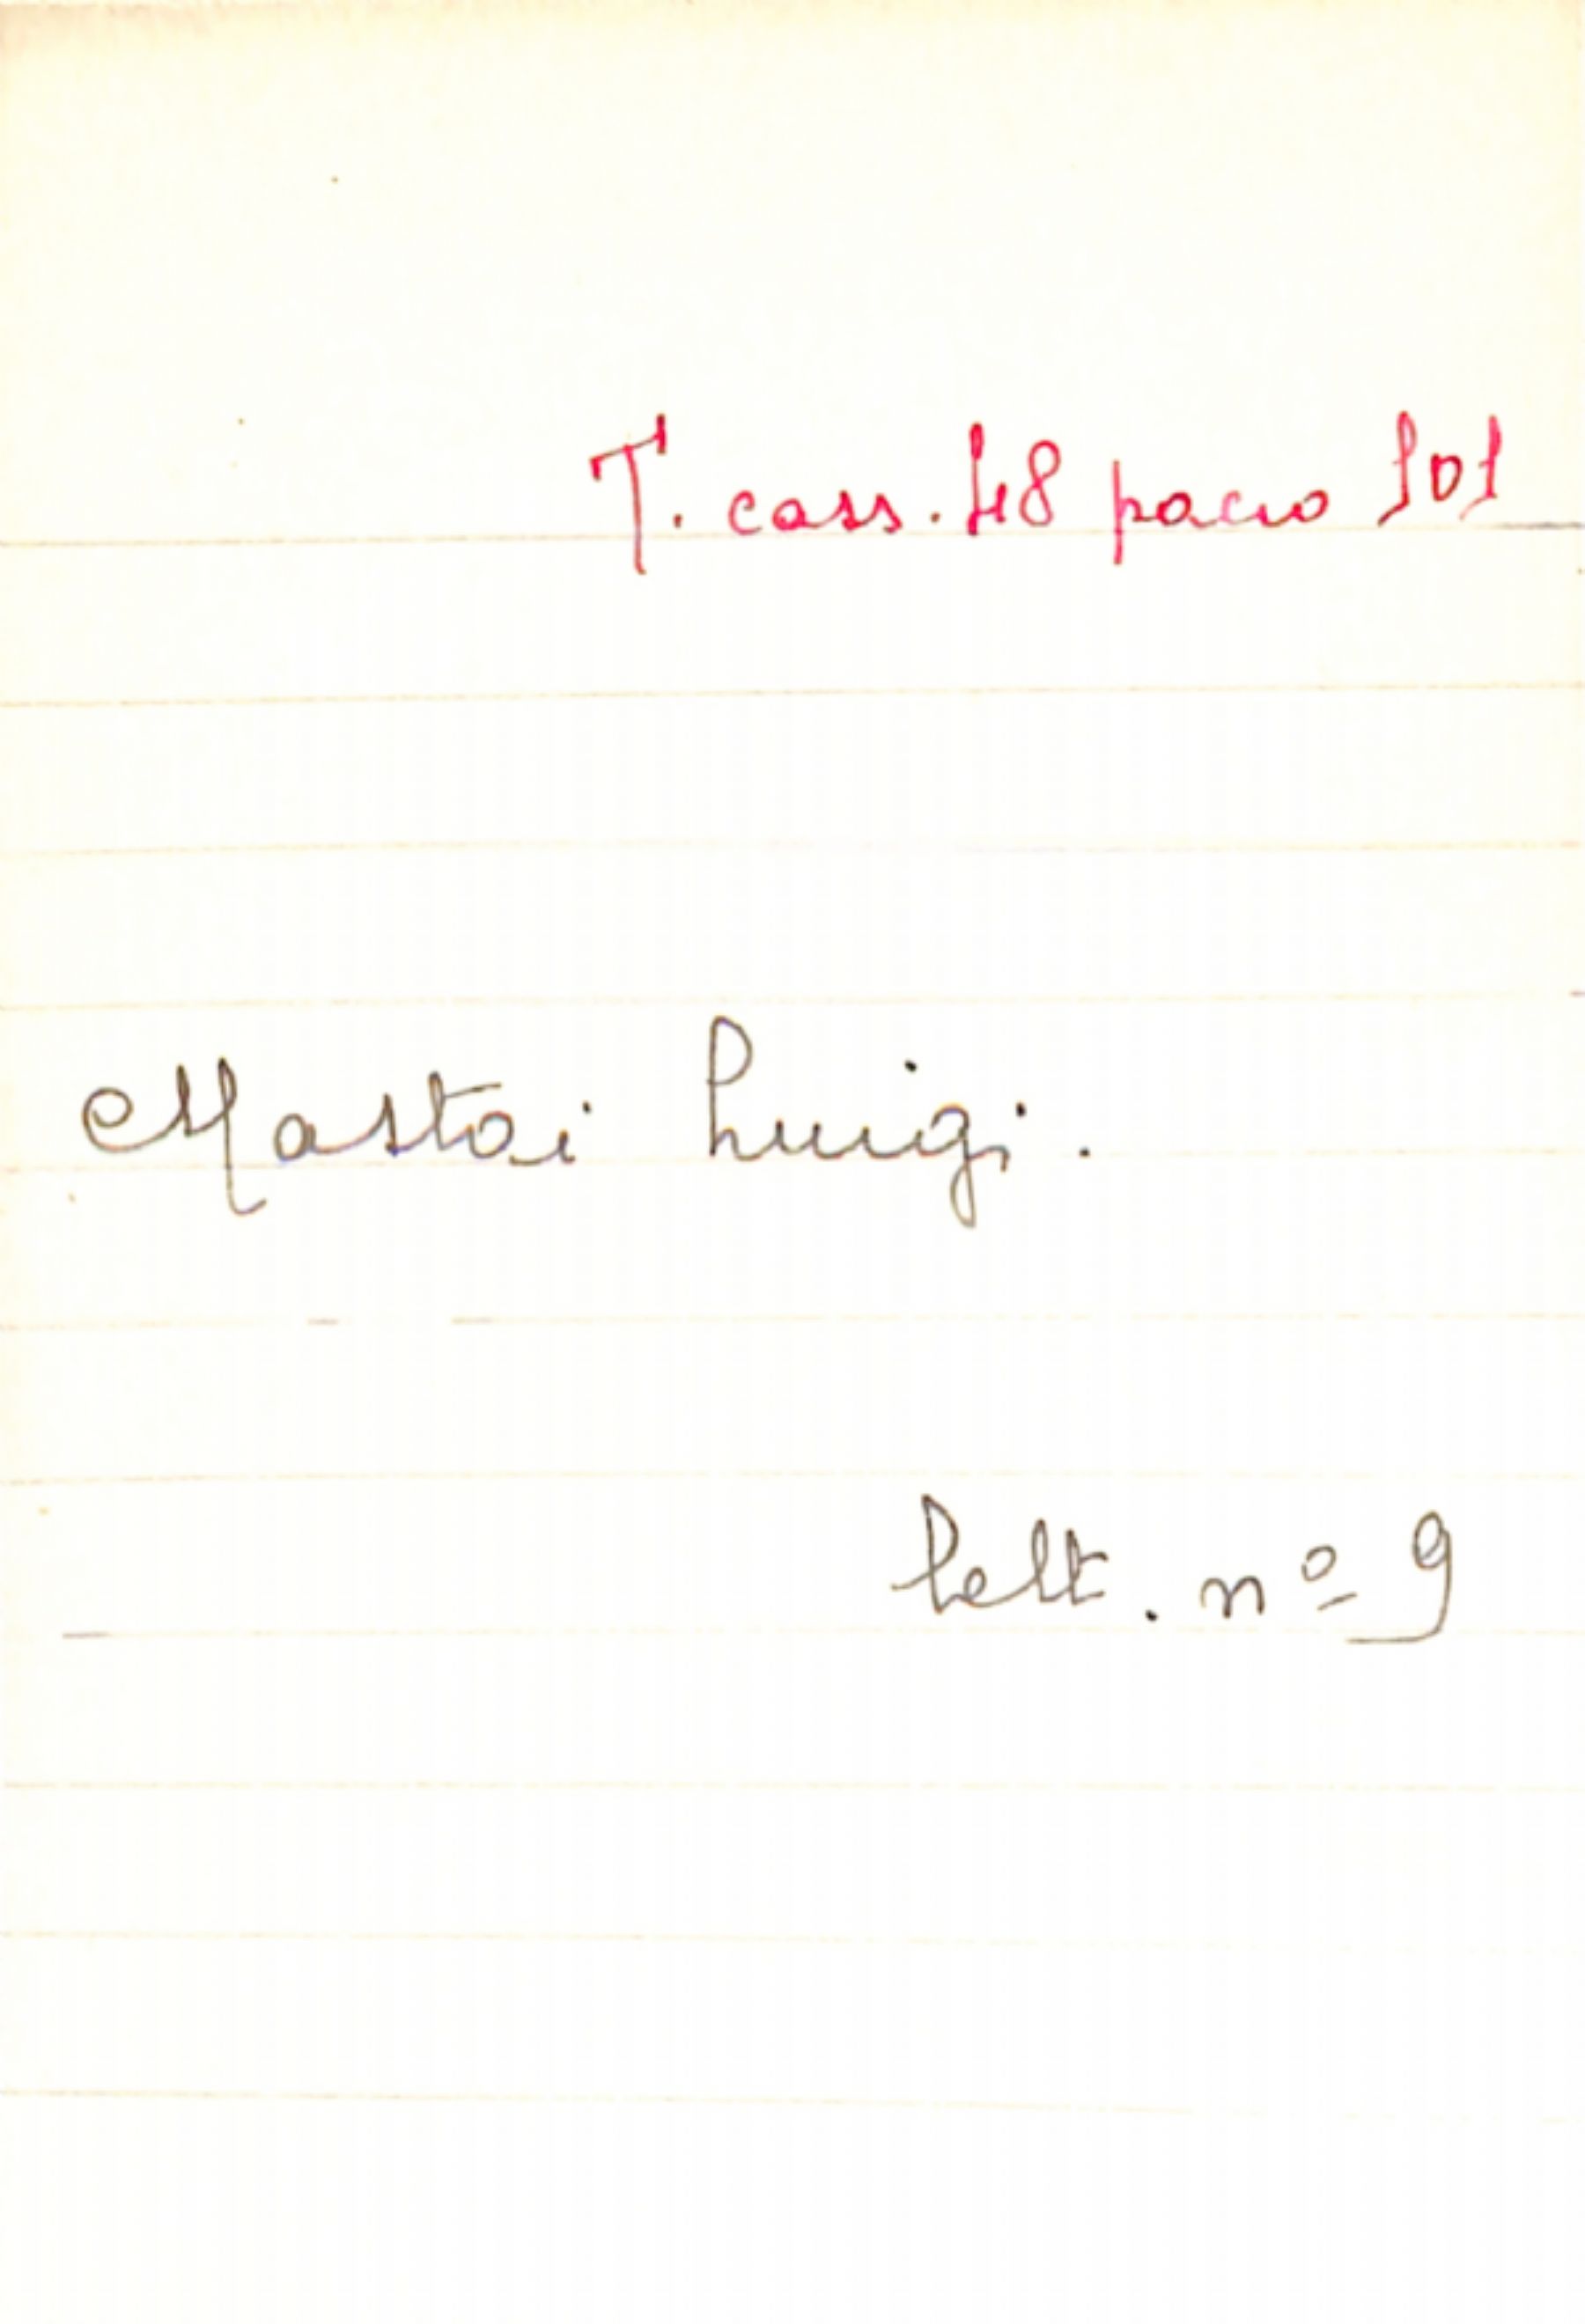 T. cass. 48 pacco 101
Mastai Luigi.
Lett. nº 9